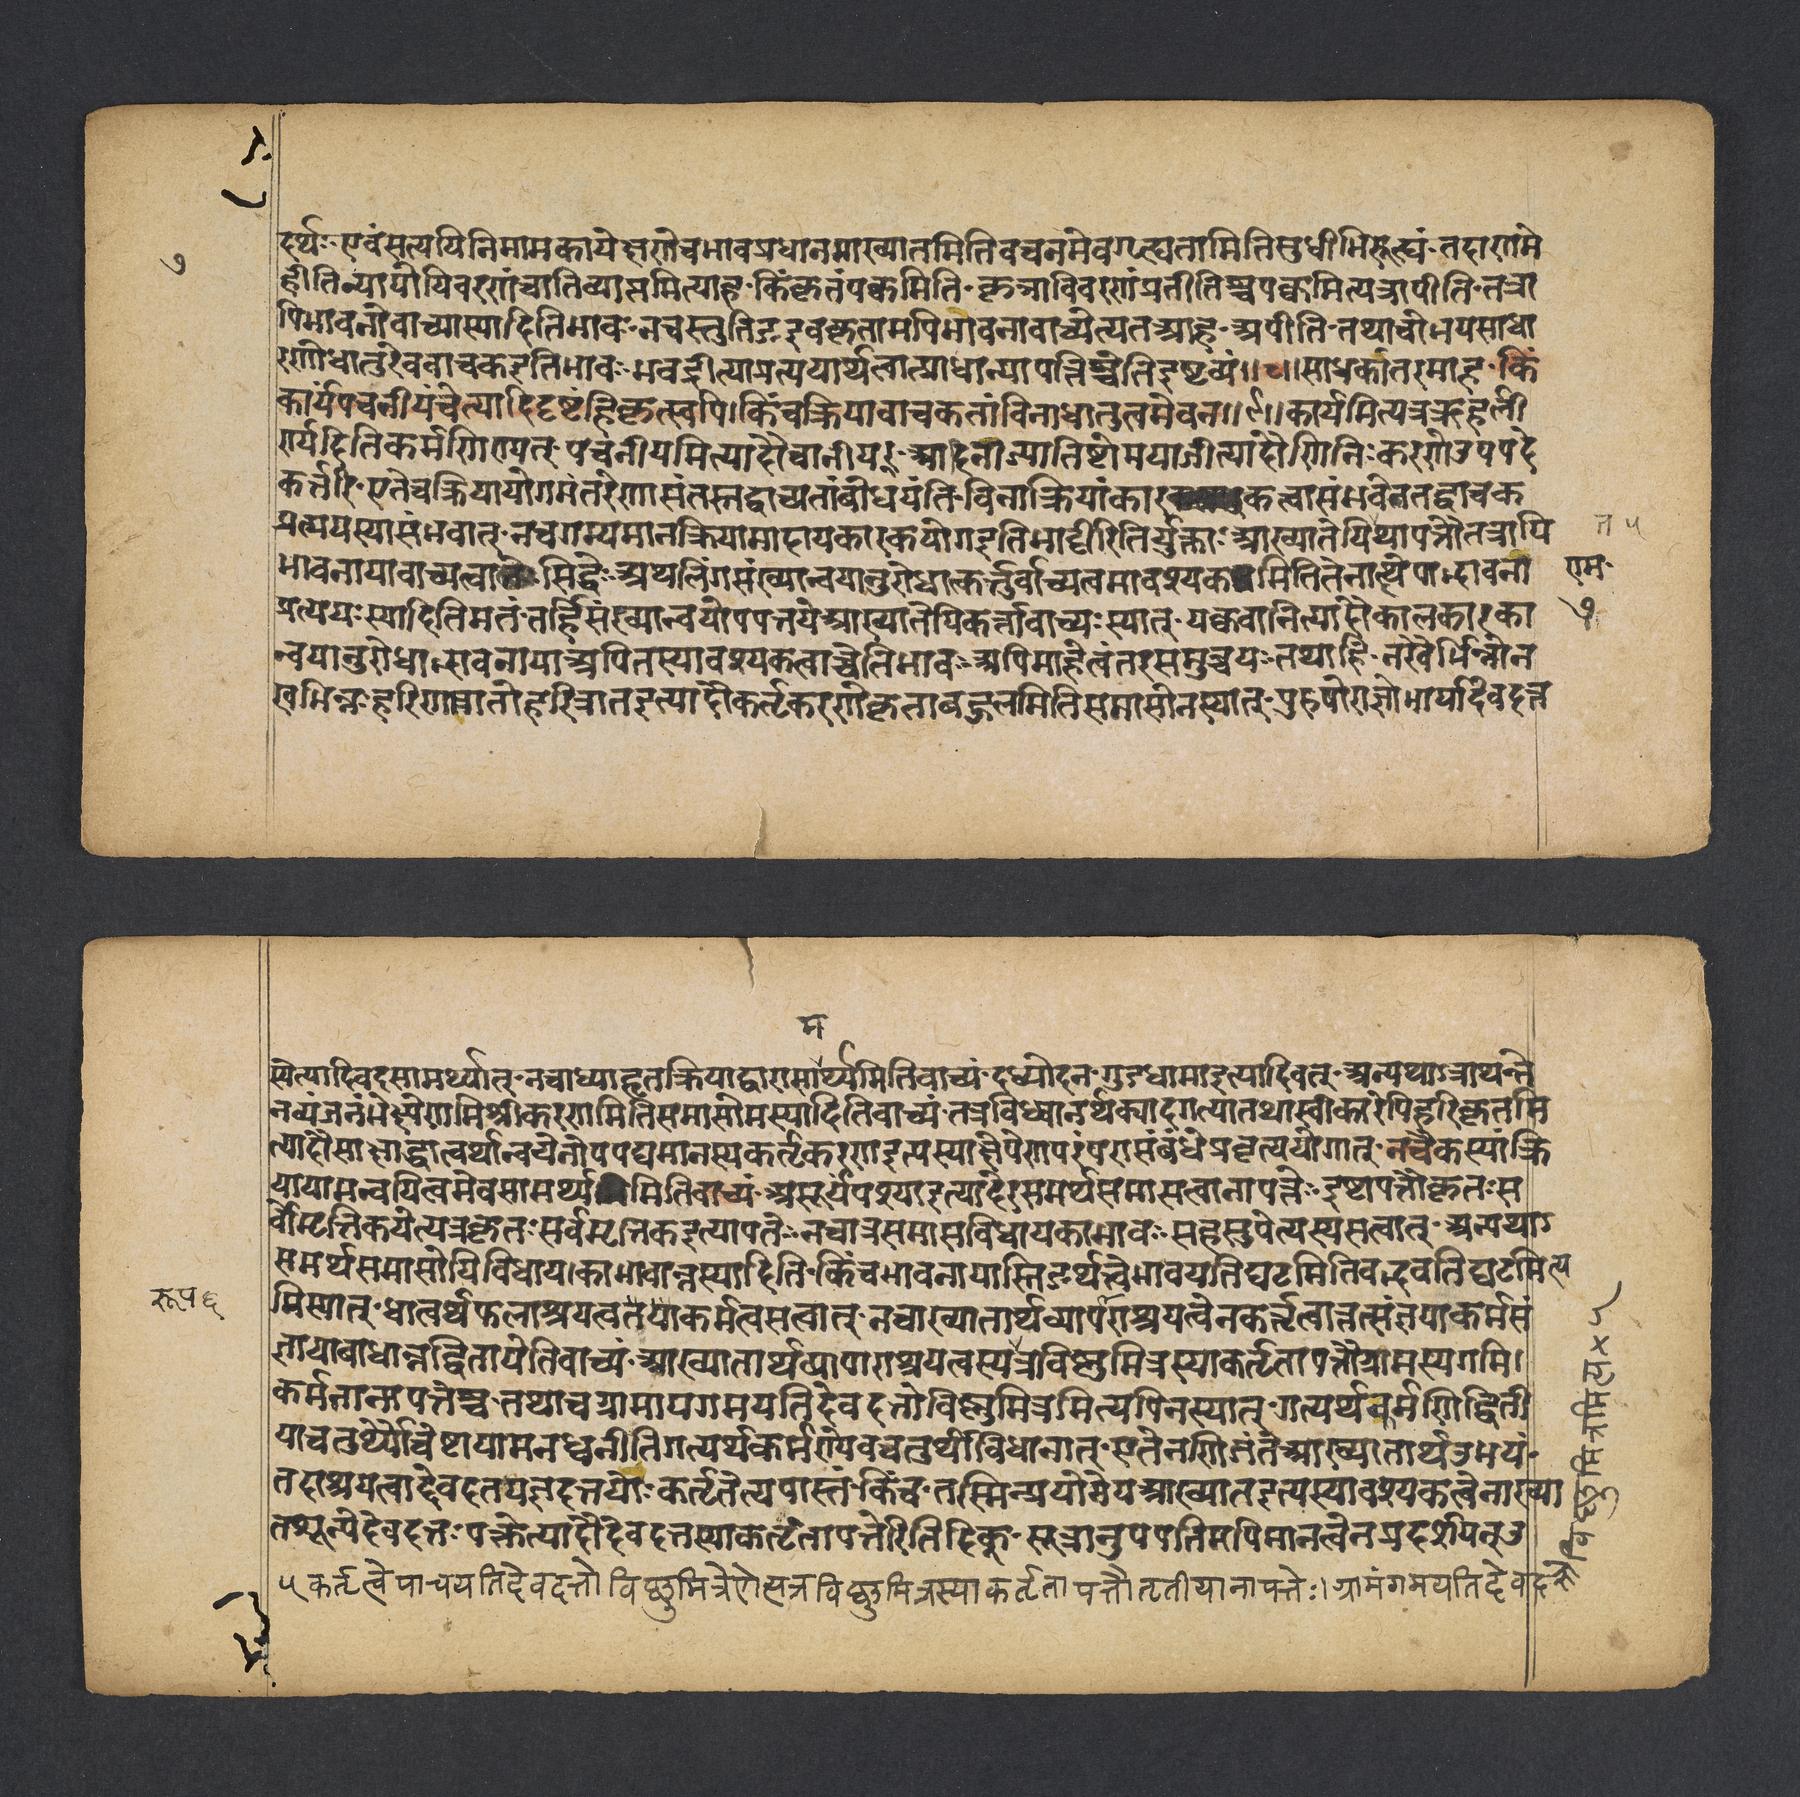 ७
दर्थः एवंसत्यपिनिमामकायेक्षरणेचभावप्रधानमाख्यातमितिवचनमेवगृह्यतामितिसुधीभिरूह्यं तदागमे
हीतिन्यायोपिविवरणंचातिव्याप्तमित्याह किंकृतंपक्वमिति कृञाविवरणंप्रतीतिश्चपक्वमित्यत्रापीति तत्रा
पिभावनावाच्यास्यादितिभावः नचस्तुतिङइवकृतामपिभावनावाच्येत्यतआह अपीति तथाचोभयसाधा
रणोधातुरेववाचकइतिभावः भवद्रीत्याप्रत्ययार्थत्वात्प्राधान्यापत्तिश्चेतिद्रष्टव्यं॥८॥साधकांतरमाह किं
कार्यंपचनीयंचेत्यादिदृष्टंहिकृत्स्वपि।किंचक्रियावाचकतांविनाधातुत्वमेवन॥९॥कार्यमित्यत्रऋहलो
र्ण्यदितिकर्मणिण्यत् पचनीयमित्यादौचानीयर् आदिनाज्योतिष्टोमयाजीत्यादौणिनिः करणेउपपदे
कर्त्तरि एतेचक्रियायोगमंतरेणासंतस्तद्वाच्यतांबोधयंति विनाक्रियांकारकत्वासंभवेनतद्वाचक
प्रत्ययस्यासंभवात् नचगम्यमानक्रियामादायकारकयोगइतिभाट्टीरितिर्युक्ताः आख्यातेपितथापत्तौतत्रापि
भावनायावाच्यत्वासिद्धेः अथलिंगसंख्यान्वयानुरोधात्कर्त्तुर्वाच्यत्वमावश्यकमितितेनाक्षेपाद्भावना
एम
७
प्रत्ययः स्यादितिमतं तर्हिसंख्यान्वयोपपत्तयेआख्यातेपिकर्त्तावाच्यः स्यात् पक्ववानित्यादौकालकारका
न्वयानुरोधाद्भावनायाअपितस्यावश्यकत्वाच्चेतिभावः अपिमाहेत्वंतरसमुच्चयः तथाहि नखैर्भिन्नोन
खभिन्नः हरिणात्रातोहरित्रातइत्यादौकर्तृकरणेकृताबहुलमितिसमासोनस्यात् पुरुषोराज्ञोभार्यादेवदत्त
म
स्येत्यादिवदसामर्थ्यात् नचाध्याहृतक्रियाद्वारासार्थ्यमितिवाच्यं दध्योदन गुडधानाइत्यादिवत् अन्यथाऽत्राप्यन्ने
नव्यंजनंभक्ष्येणमिश्रीकरणमितिसमासोमस्यादितिवाच्यं तत्रविध्यानर्थक्यादगत्यातथास्वीकारेपिहरिकृतमि
त्यादौसाक्षाद्धात्वर्थान्वयेनोपपद्यमानस्यकर्तृकरणइत्यस्याक्षेपेणपरंपरासंबंधेप्रवृत्त्ययोगात् नचैकस्यांक्रि
यायामन्वयित्वमेवसामर्थ्यमितिवाच्यं असूर्यंपश्याइत्यादेरसमर्थसमासत्वानापत्तेः इष्टापत्तौकृतः स
र्वोमृत्तिकयेत्यत्रकृतः सर्वमृत्तिकइत्यापत्तेः नचात्रसमासविधायकाभावः सहसुपेत्यस्यसत्वात् अन्यथाऽ
समर्थसमासोपिविधायकाभावान्नस्यादिति किंचभावनायास्तिङर्थत्वेभावयतिघटमितिवद्भवतिघटमित्य
पिस्यात् धात्वर्थफलाश्रयत्वतयाकर्मत्वसत्वात् नचाख्यातार्थव्यापाराश्रयत्वेनकर्तृत्वात्तत्संज्ञयाकर्मसं
ज्ञायाबाधान्नद्वितीयेतिवाच्यं आख्यातार्थव्यापाराश्रयत्वस्यत्रविष्णुमित्रस्याकर्तृतापत्तौग्रामस्यगमि।
कर्मतानापत्तेश्च तथाचग्रामायगमयतिदेवदत्तोविष्णुमित्रमित्यपिनस्यात् गत्यर्थकर्मणिद्विती
याचतुर्थ्यौचेष्टायामनध्वनीतिगत्यर्थकर्मण्येवचतुर्थीविधानात् एतेनणिजंतेआख्यातार्थउभयं
तदाश्रयत्वाद्देवदत्तयज्ञदत्तयोः कर्तृतेत्यपास्तं किंच तस्मिन्प्रयोगेयआख्यातइत्यस्यावश्यकत्वेनाख्या
तशून्येदेवदत्तः पक्तेत्यादौदेवदत्तस्याकर्तृतापत्तेरितिदिक् सूत्रानुपपत्तिमपिमानत्वेनप्रदर्शयन्उ
५ कर्तृत्वेपाचयतिदेवदत्तोविष्णुमित्रेणेत्यत्रविष्णुमित्रस्याकर्तृतापत्तौतृतीयानापत्तेः।ग्रामंगमयतिदेवदत्तो
विष्णुमित्रमित्य×